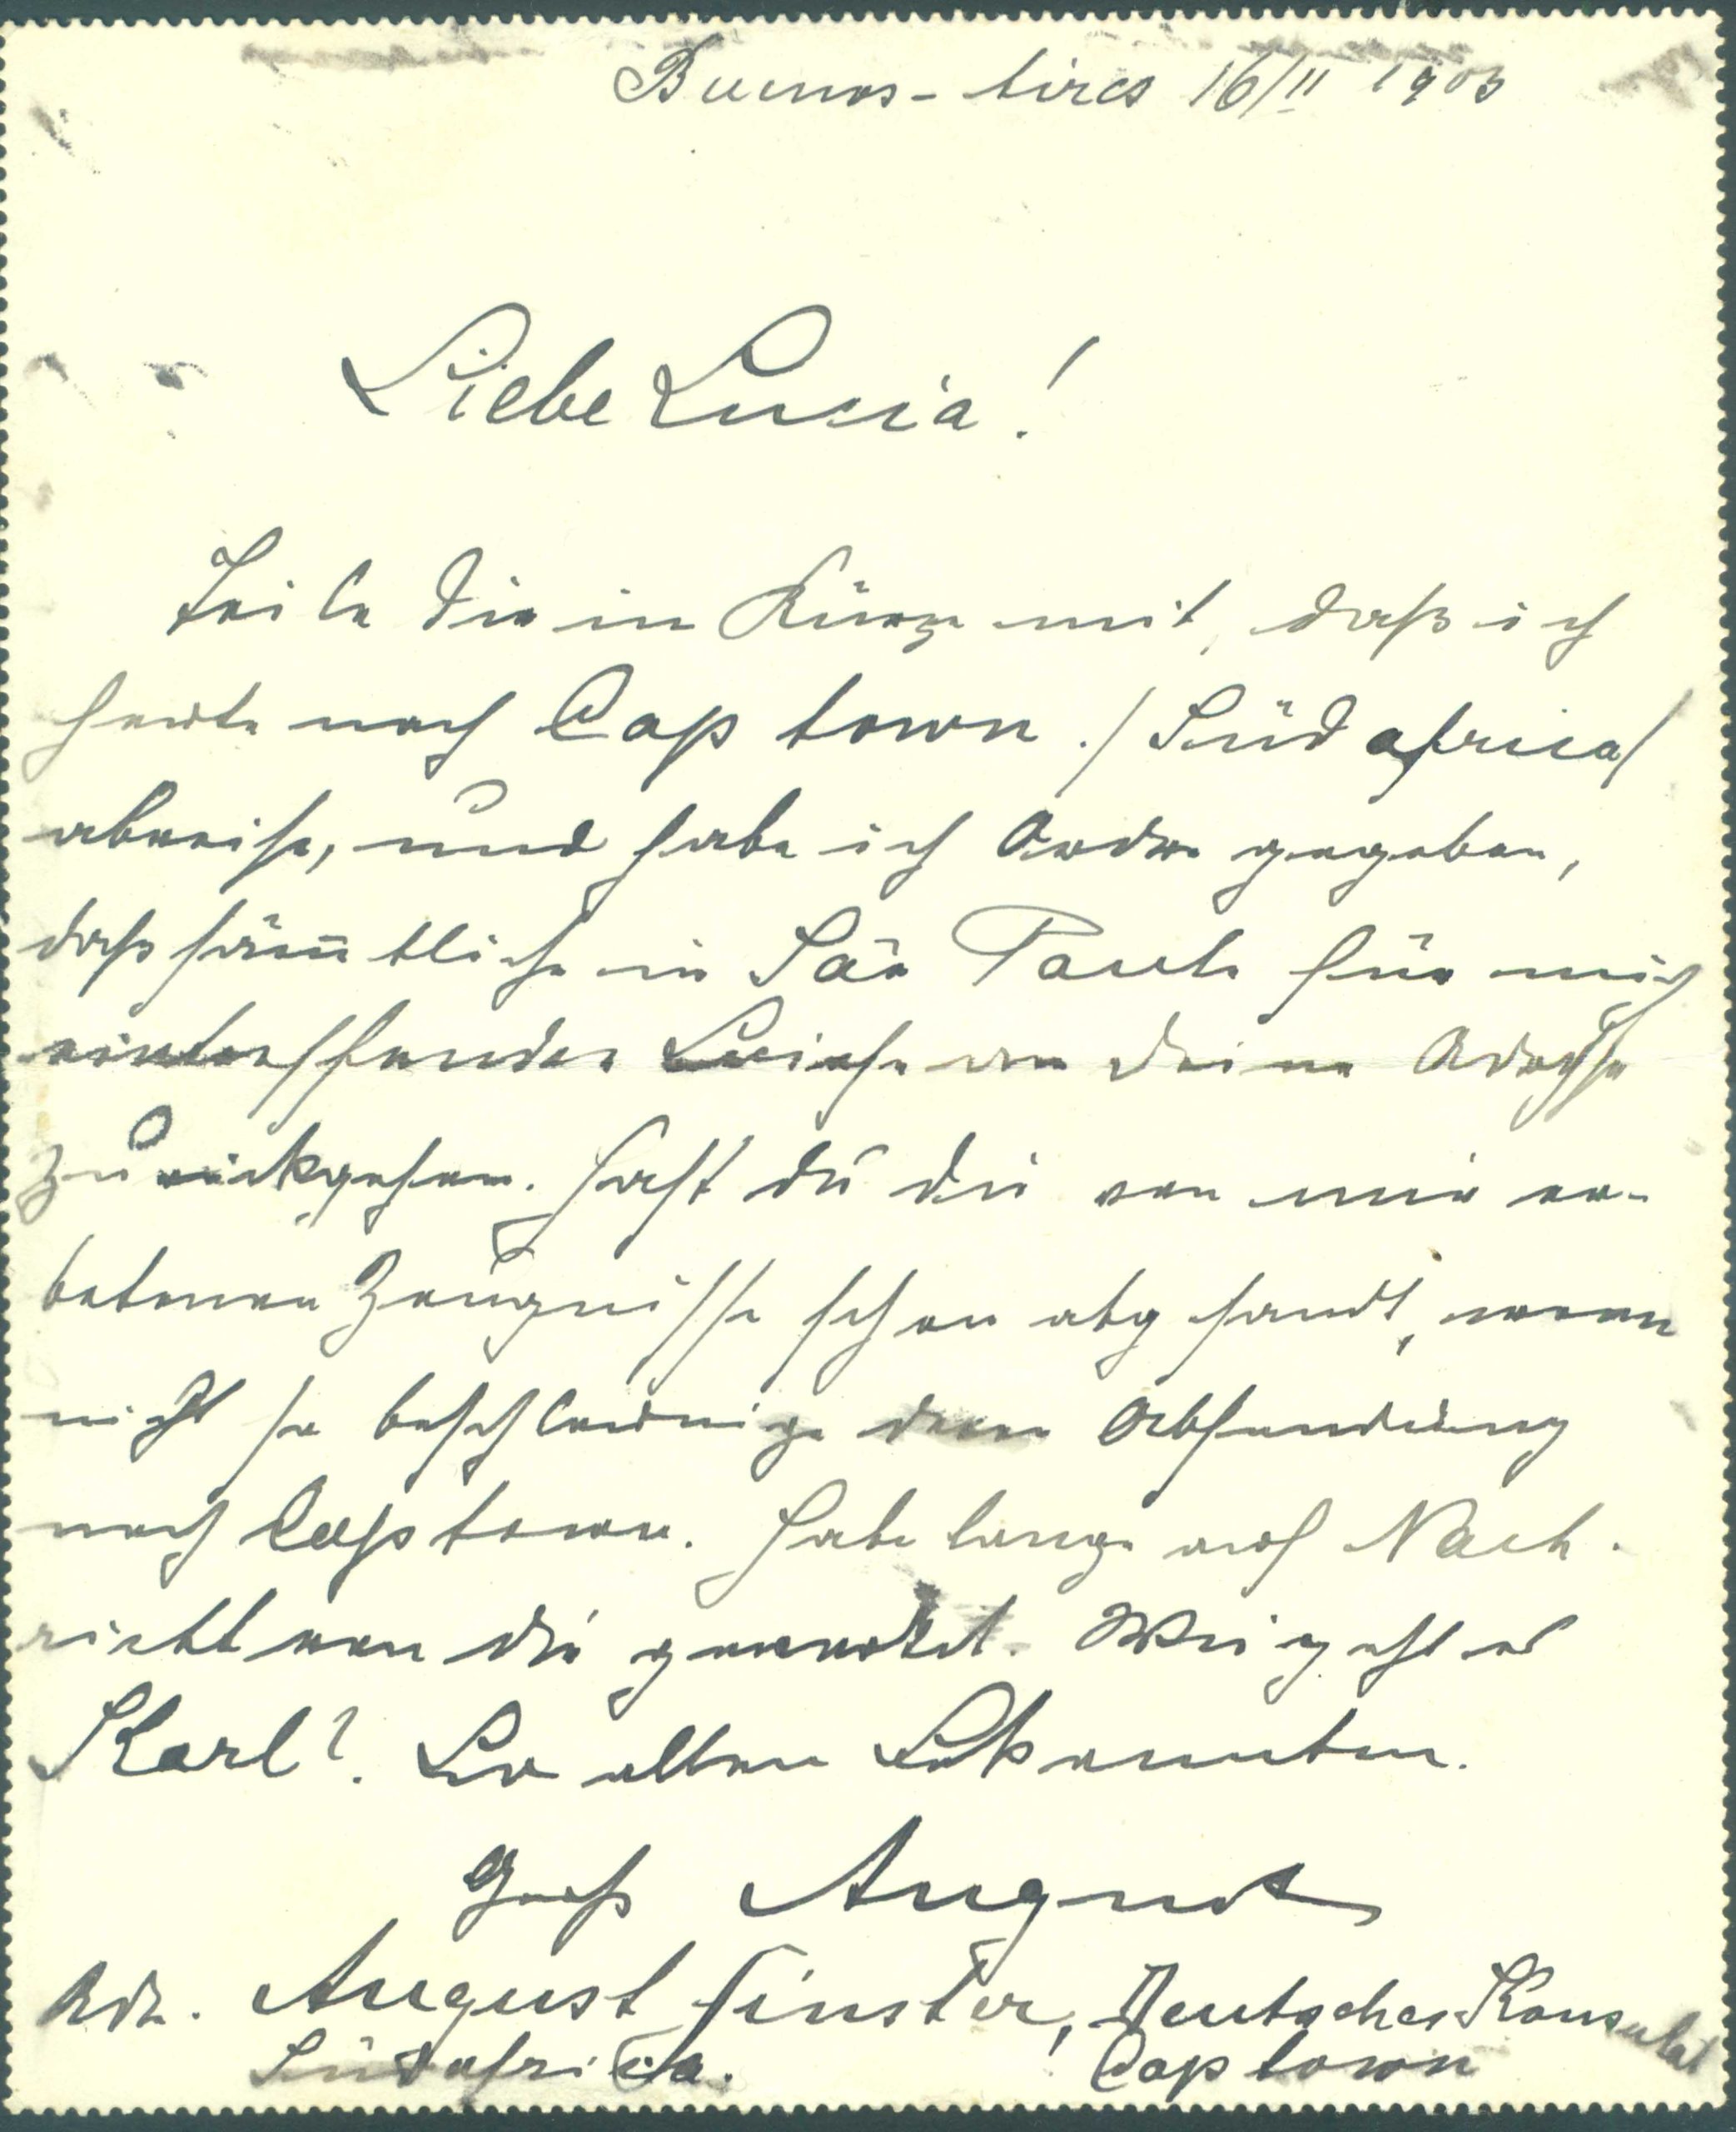 Buenos-Aires 16/II 1903
Liebe Lucia!
Teile Dir in Kürze mit, daß ich
heute nach Captown ./Südafrica/
abreise, und habe ich Ordre gegeben,
daß sämtliche in Sáo Paulo für mich
eintreffenden Briefe an deine Adresse
zurückgehen. Hast du die von mir er-
betenen Zeugnisse schon abgesandt, wenn
nicht so beschleunige deren Absendung
nach Captown. Habe lange auf Nach-
richt von dir gewartet. Wie geht es
Karl? Gr allen Bekannten.
Gruß August
Adr. August Finster, Deutsches Konsulat
Südafrica. Captown